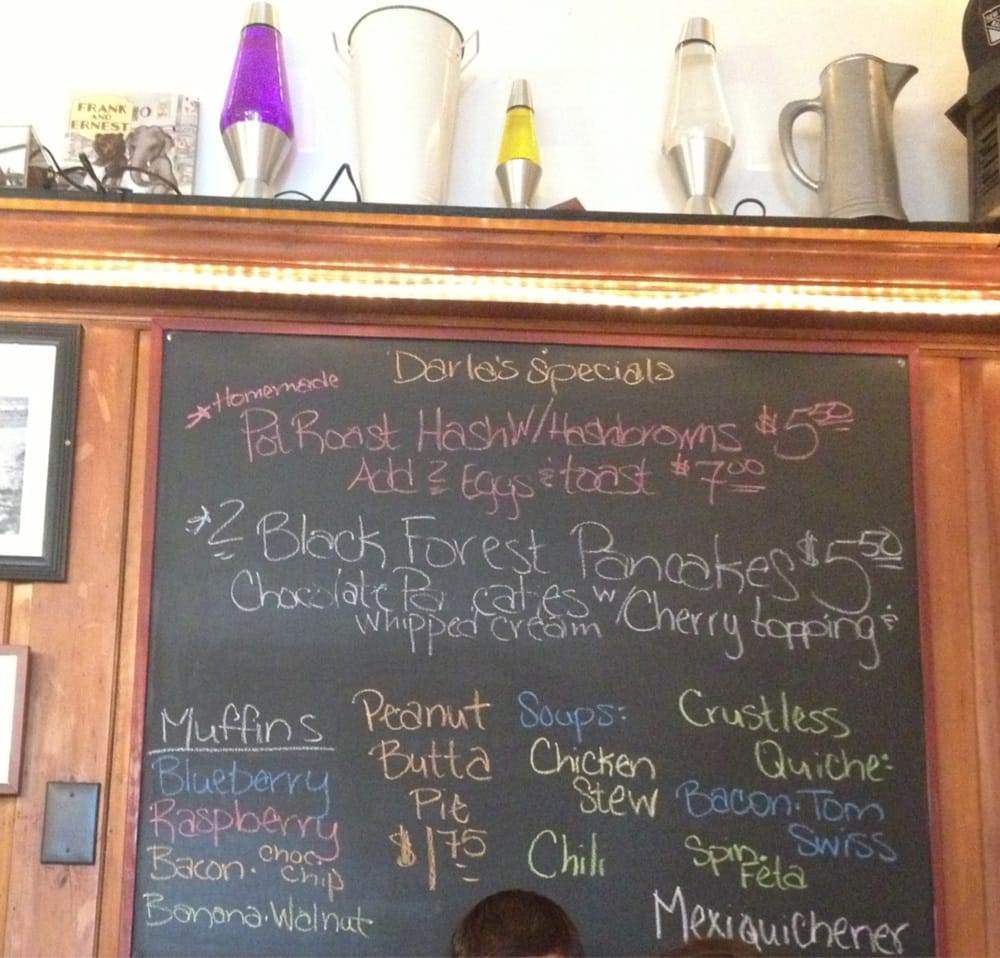 FRANK
AND
ERNEST
Darla's Specials
*Homemade
Pot Roast Hash W/Hashbrowns $5.50
Add 2 Eggs & toast $7.00
*2 Black Forest Pancakes $5.50
Chocolate Pancakes w/Cherry topping &
whipped cream
Muffins
Blueberry
Raspberry
Bacon. choc. chip
Banana.Walnut
Peanut
Butta
Pie
$1.75
Soups:
Chicken
Stew
Chili
Crustless
Quiche:
Bacon.Tom
Swiss
Spin.
Feta
Mexiquichener